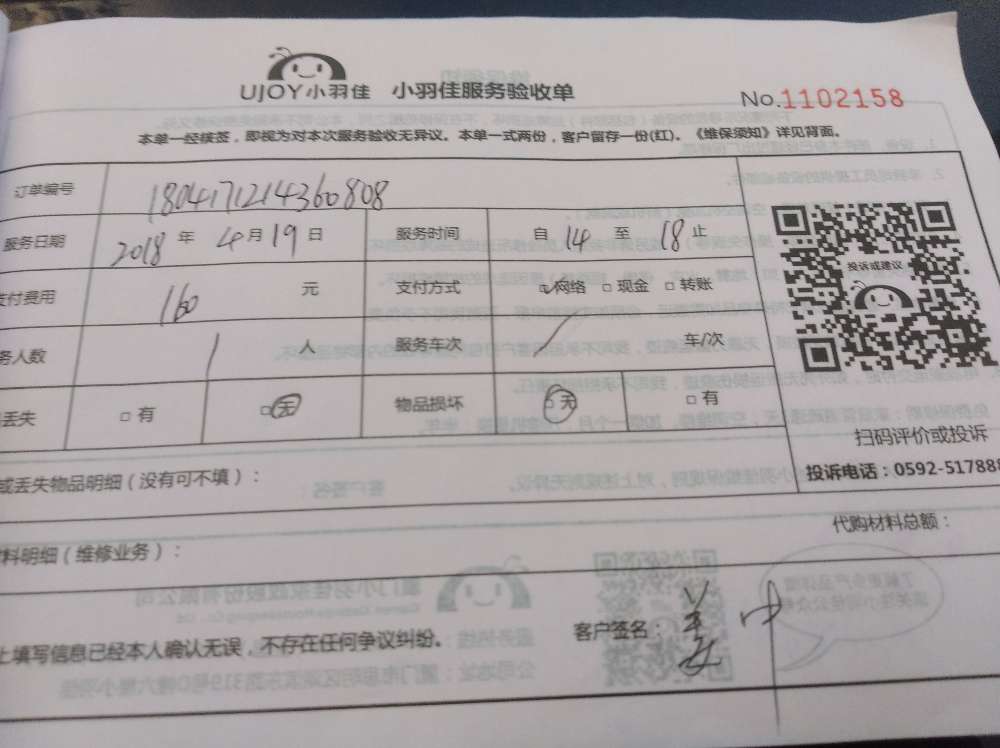 UJOY小羽佳 小羽佳服务验收单 No.1102158
本单一经核签，即视为对本次服务验收无异议。本单一式两份，客户留存一份(红)。《维保须知》详见背面。
订单编号 1804171214360808
服务日期 2018 年 4 月 19 日 服务时间 自 14 至 18 止
投诉或建议
支付费用 160 元 支付方式 □网络 □现金 □转账
务人数 1 人 服务车次 / 车/次
丢失 □有 □无 物品损坏 □无 □有
扫码评价或投诉
投诉电话：0592-517888
或丢失物品明细（没有可不填）：
代购材料总额：
料明细（维修业务）：
上填写信息已经本人确认无误，不存在任何争议纠纷。 客户签名：姜中